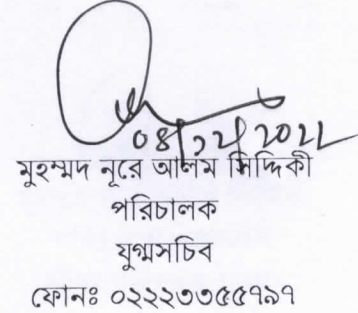 ০৪/১২/২০২২
মুহম্মদ নূরে আলম সিদ্দিকী
পরিচালক
যুগ্মসচিব
ফোনঃ ০২২২৩৩৫৫৭৯৭